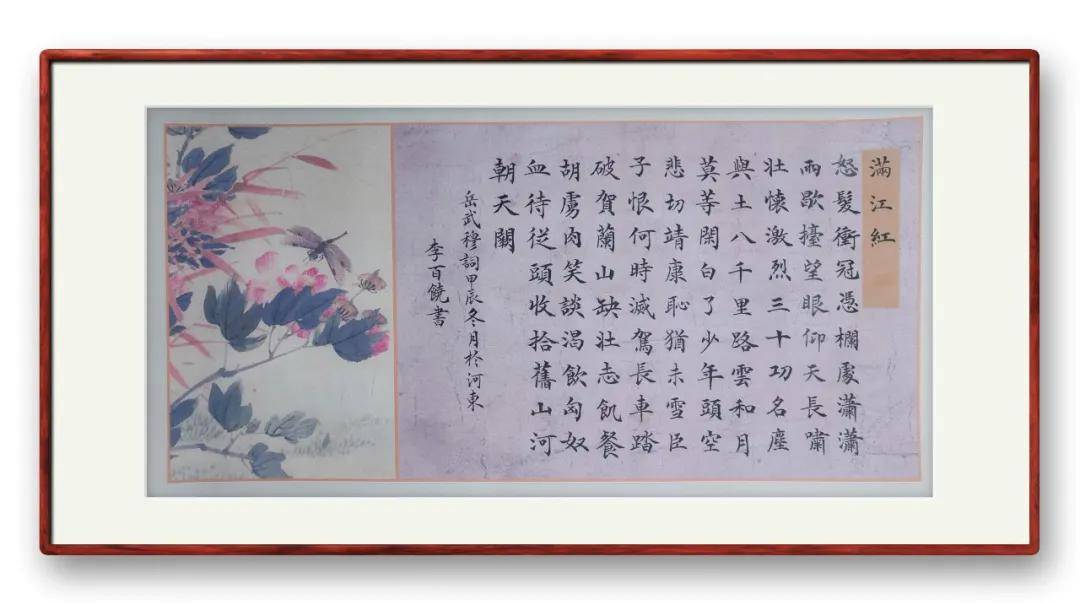 滿江紅
怒髮衝冠憑欄處瀟瀟
雨歇擡望眼仰天長嘯
壯懷激烈三十功名塵
與土八千里路雲和月
莫等閑白了少年頭空
悲切靖康恥猶未雪臣
子恨何時滅駕長車踏
破賀蘭山缺壯志飢餐
胡虜肉笑談渴飲匈奴
血待從頭收拾舊山河
朝天闕
岳武穆詞甲辰冬月於河東
李百饒書